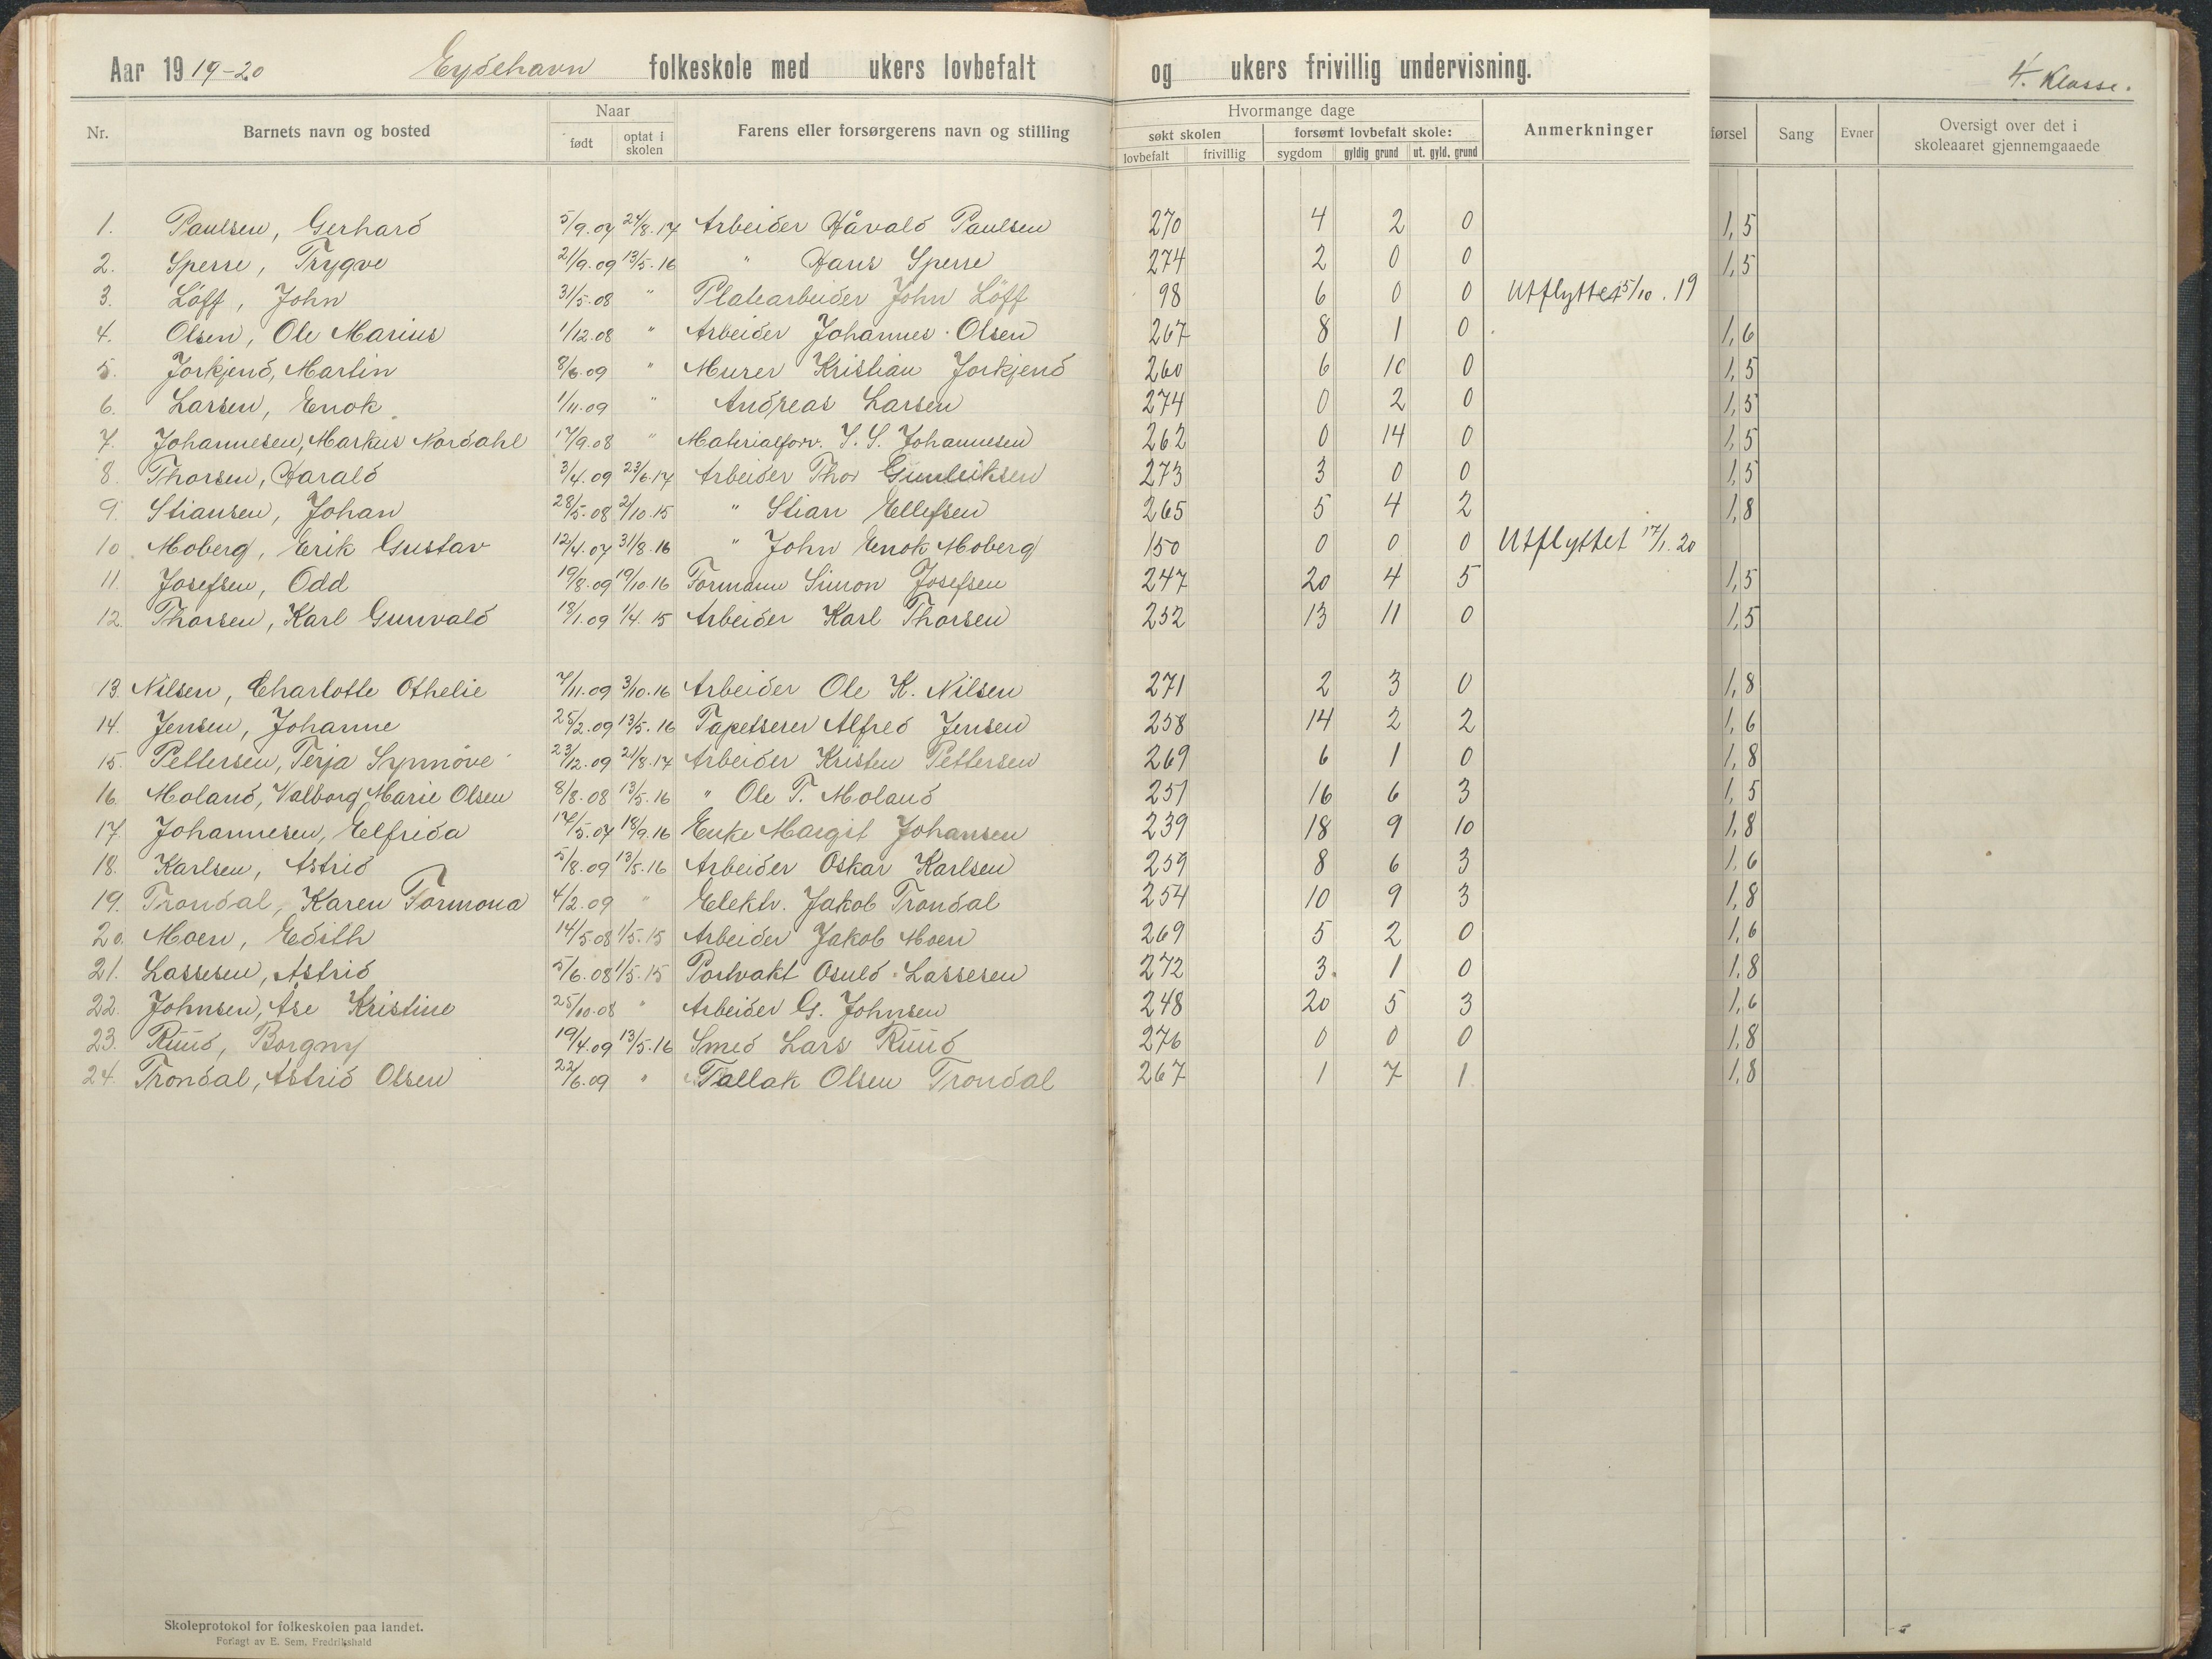 Aar 1919-20 Eydehavn folkeskole med ukers lovbefalt og ukers frivillig undervisning. 4. Klasse.
Nr. Barnets navn og bosted Naar født optat i skolen Farens eller forsørgerens navn og stilling Hvormange dage søkt skolen lovbefalt frivillig forsømt lovbefalt skole: sygdom gyldig grund ut. gyld. grund Anmerkninger førsel Sang Evner Oversigt over det i skoleaaret gjennemgaaede
1. Paulsen, Gerhard 5/9.07 24/8.17 Arbeider Håvald Paulsen 270 4 2 0 1,5
2. Sperre, Trygve 21/9.09 13/5.16 " Hans Sperre 274 2 0 0 1,5
3. Löff, John 31/5.08 " Platearbeider John Löff 98 6 0 0 Utflyttet 5/10.19
4. Olsen, Ole Marius 1/12.08 " Arbeider Johannes Olsen 267 8 1 0 1,6
5. Jorkjend, Martin 8/6.09 " Murer Kristian Jorkjend 260 6 10 0 1,5
6. Larsen, Enok 1/11.09 " Andreas Larsen 274 0 2 0 1,5
7. Johannesen, Markus Nordahl 17/9.08 " Materialforv. J. S. Johannesen 262 0 14 0 1,5
8. Thorsen, Harald 3/4.09 23/6.17 Arbeider Thor Gunleiksen 273 3 0 0 1,5
9. Stiansen, Johan 28/5.08 21/10.15 " Stian Ellefsen 265 5 4 2 1,8
10. Moberg, Erik Gustav 12/4.07 31/8.16 " John Enok Moberg 150 0 0 0 Utflyttet 17/1.20
11. Josefsen, Odd 19/8.09 19/10.16 Formann Simon Josefsen 247 20 4 5 1,5
12. Thorsen, Karl Gunvald 18/1.09 1/4.15 Arbeider Karl Thorsen 252 13 11 0 1,5
13. Nilsen, Charlotte Othelie 7/11.09 3/10.16 Arbeider Ole K. Nilsen 271 2 3 0 1,8
14. Jensen, Johanne 25/2.09 13/5.16 Tapetserer Alfred Jensen 258 14 2 2 1,6
15. Pettersen, Terja Synnöve 23/12.09 21/8.17 Arbeider Kristen Pettersen 269 6 1 0 1,8
16. Moland, Valborg Marie Olsen 8/8.08 13/5.16 " Ole T. Moland 251 16 6 3 1,5
17. Johannesen, Elfrida 17/5.07 18/9.16 Enke Margit Johansen 239 18 9 10 1,8
18. Karlsen, Astrid 5/8.09 13/5.16 Arbeider Oskar Karlsen 259 8 6 3 1,6
19. Trondal, Karen Tormona 4/2.09 " Elektr. Jakob Trondal 254 10 9 3 1,8
20. Moen, Edith 14/5.08 1/5.15 Arbeider Jakob Moen 269 5 2 0 1,6
21. Lassesen, Astrid 5/6.08 1/5.15 Portvakt Osuld Lassesen 272 3 1 0 1,8
22. Johnsen, Åse Kristine 25/10.08 " Arbeider G. Johnsen 248 20 5 3 1,6
23. Ruud, Borgny 19/4.09 13/5.16 Smed Lars Ruud 276 0 0 0 1,8
24. Trondal, Astrid Olsen 22/6.09 " Tallak Olsen Trondal 267 1 7 1 1,8
Skoleprotokol for folkeskolen paa landet.
Forlagt av E. Sem, Fredrikshald